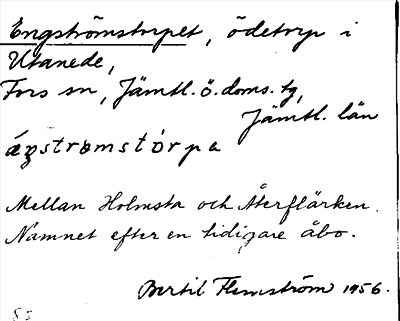 Engströmstorpet, ödetorp i
Utanede,
Fors sn, Jämtl. ö. doms. tg,
Jämtl. län
áŋstrømstòrpa
Mellan Holmsta och Återflärken.
Namnet efter en tidigare åbo.
Bertil Flemström 1956.